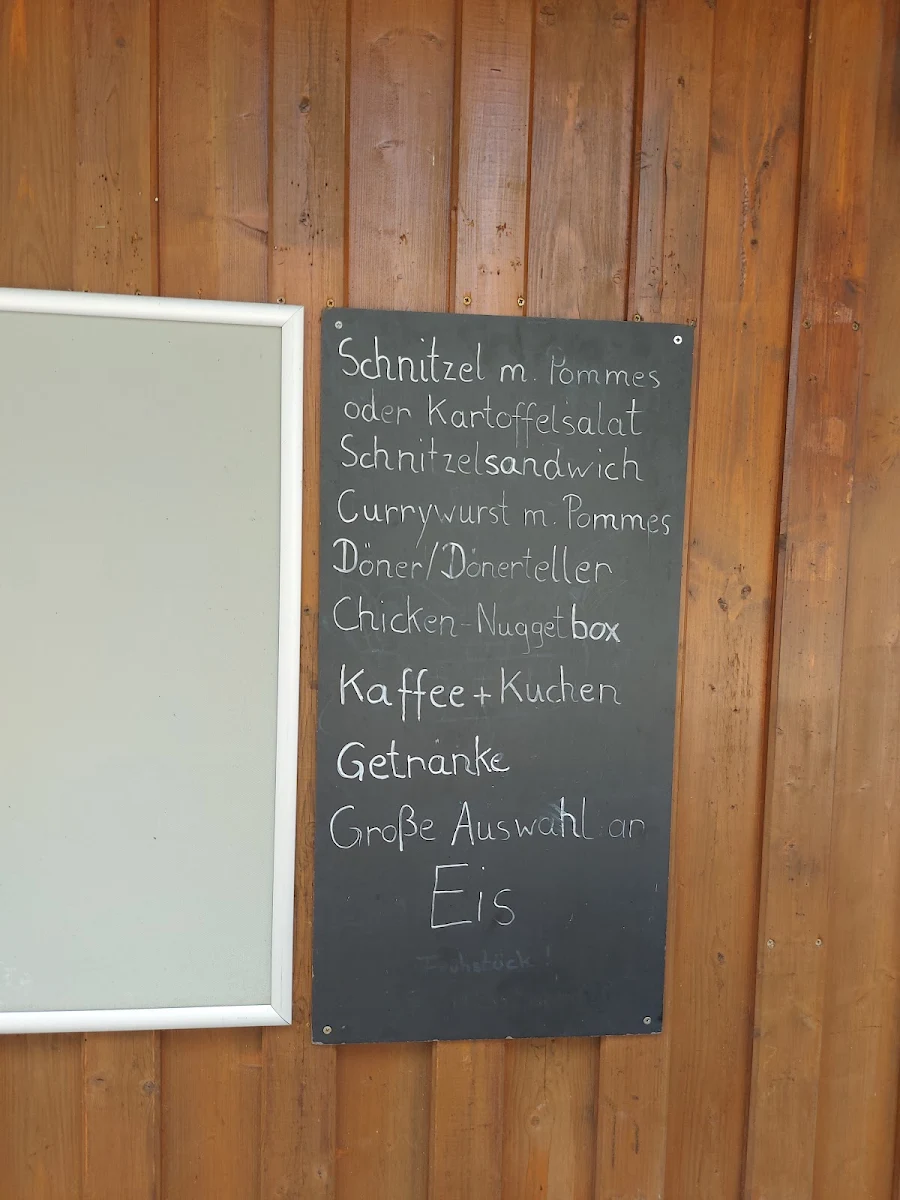 Schnitzel m. Pommes
oder Kartoffelsalat
Schnitzelsandwich
Currywurst m. Pommes
Döner/Dönerteller
Chicken-Nuggetbox
Kaffee + Kuchen
Getränke
Große Auswahl an
Eis
Frühstück!